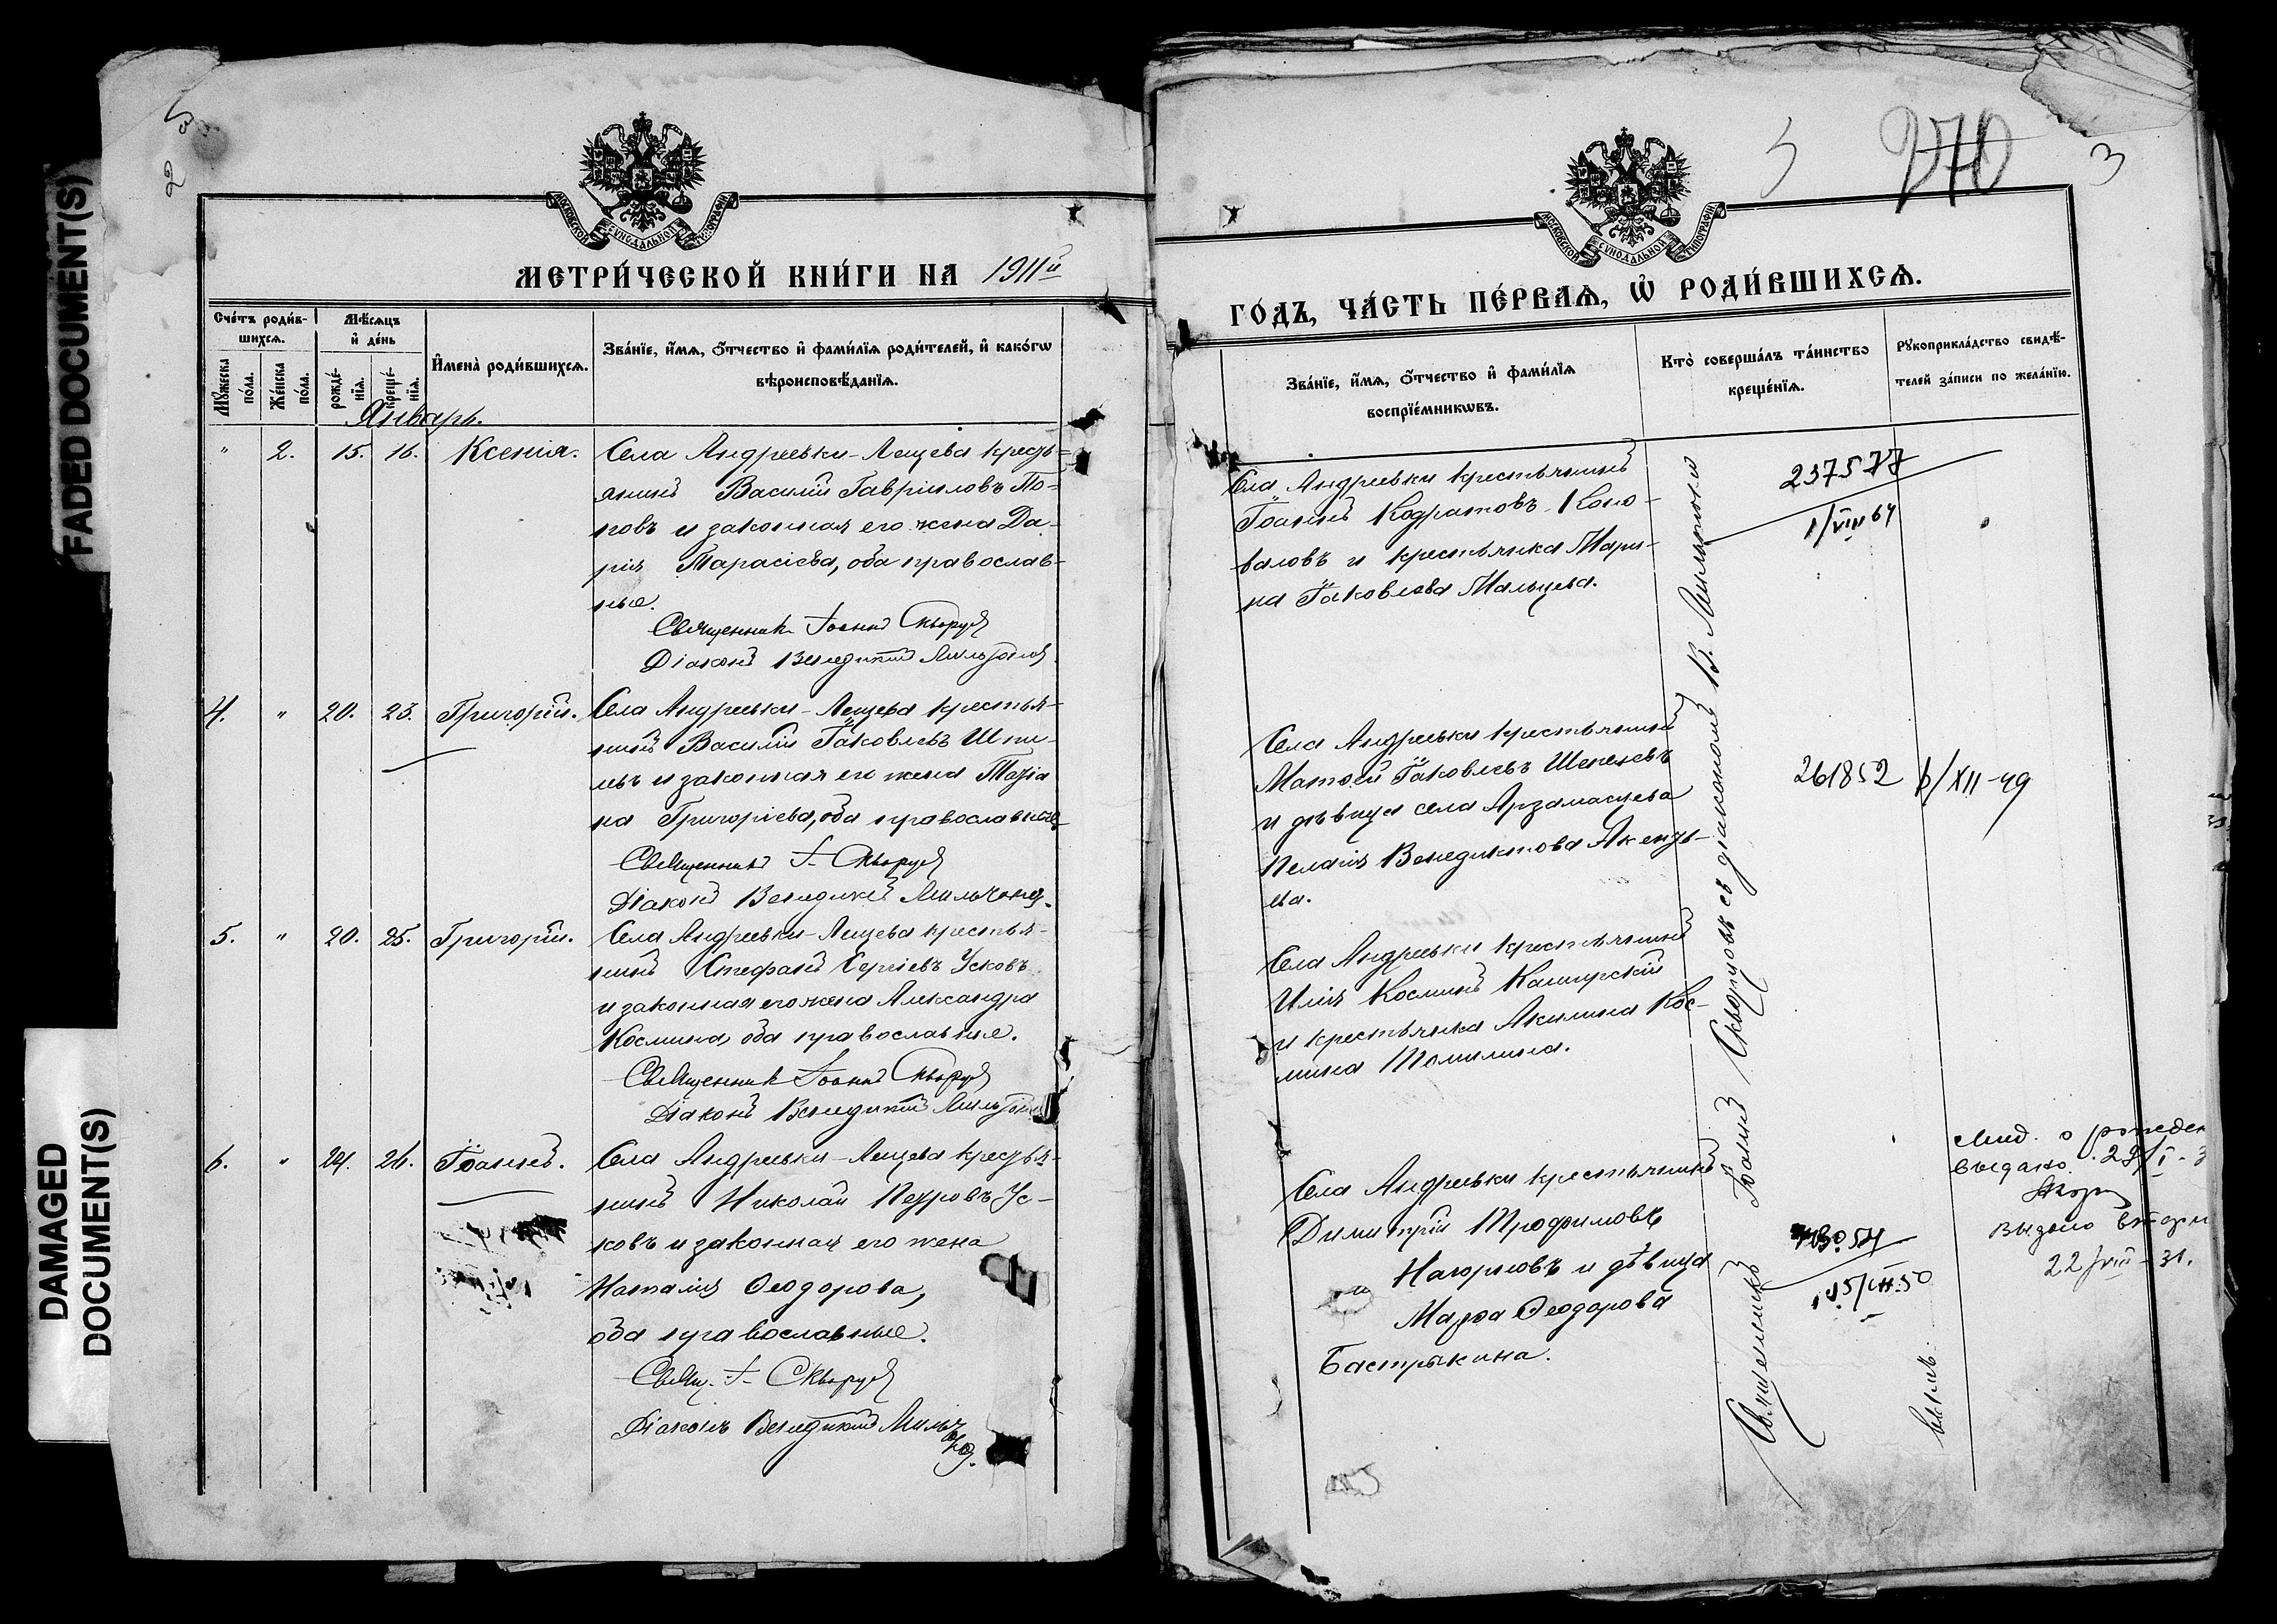 FADED DOCUMENT(S)
DAMAGED
DOCUMENT(S)
2
МОСКОВСКОЙ СѴНОДАЛЬНОЙ ТИПОГРАФІИ
МЕТРИ́ЧЕСКОЙ КНИ́ГИ НА 1911й
Сче́тъ роди́в-
шихсѧ.
Мꙋ́жеска по́ла.
Же́нска по́ла.
Мѣ́сѧцъ
и҆ де́нь
рожде́-
нїѧ.
креще́-
нїѧ.
И҆мена̀ роди́вшихсѧ.
Зва́нїе, и҆́мѧ, ѻ҆́тчество и҆ фами́лїѧ роди́телей, и҆ како́гѡ
вѣроисповѣ́данїѧ.
Январь.
" 2. 15. 16. Ксенія. Села Андреевки-Лещева кресть-
янинъ Василій Гавріиловъ По-
повъ и законная его жена Да-
рія Тарасіева, оба православ-
ные.
Священникъ Іоаннъ Скворцовъ
Діаконъ Венедиктъ
4. " 20. 23. Григорій. Села Андреевки-Лещева крестья-
нинъ Василій Іаковлевъ
и законная его жена Татіа
на Григоріева, оба православные
Священникъ І. Скворцовъ
Діаконъ Венедиктъ
5. " 20. 25. Григорій. Села Андреевки-Лещева крестья-
нинъ Стефанъ Сергіевъ Усковъ
и законная его жена Александра
Космина, оба православные.
Священникъ Іоаннъ Скворцовъ
Діаконъ Венедиктъ
6. " 24. 26. Іоаннъ. Села Андреевки-Лещева крестья-
нинъ Николай Петровъ Ус-
ковъ и законная его жена
Наталія Ѳеодорова,
оба православные.
Свящ. І. Скворцовъ
Діаконъ Венедиктъ
270
3
МОСКОВСКОЙ СѴНОДАЛЬНОЙ ТИПОГРАФІИ
ГО́ДЪ, ЧА́СТЬ ПЕ́РВАѦ, Ѽ РОДИ́ВШИХСѦ.
Зва́нїе, и҆́мѧ, ѻ҆́тчество и҆ фами́лїѧ
воспрїе́мникѡвъ.
Кто̀ соверша́лъ та́инство
креще́нїѧ.
Рꙋкоприкла́дство свидѣ́-
телей за́писи по жела́нїю.
Села Андреевки крестьянинъ
Іоаннъ Кодратовъ Коно-
валовъ и крестьянка Мари-
на Іаковлева Мальцева.
237577
1/VIII 64
Села Андреевки крестьянинъ
Матѳей Іаковлевъ
и дѣвица села Арзамасцева
Пелагія Венедиктова
ева.
261852 6/XII-49
Села Андреевки крестьянинъ
Илія Косминъ Каширскій
и крестьянка Акилина Кос-
мина Томилина.
Села Андреевки крестьянинъ
Димитрій Трофимовъ
Нагорновъ и дѣвица
Марѳа Ѳеодорова
Бастрыкина.
Священникъ Іоаннъ Скворцовъ съ діакономъ В.
выдано
22/VIII-31.